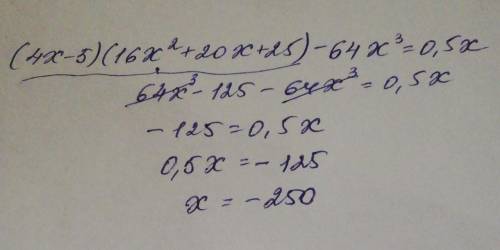 (4x-5)(16x²+20x+25)-64x³=0,5x
64x³-125-64x³=0,5x
-125=0,5x
0,5x=-125
x=-250